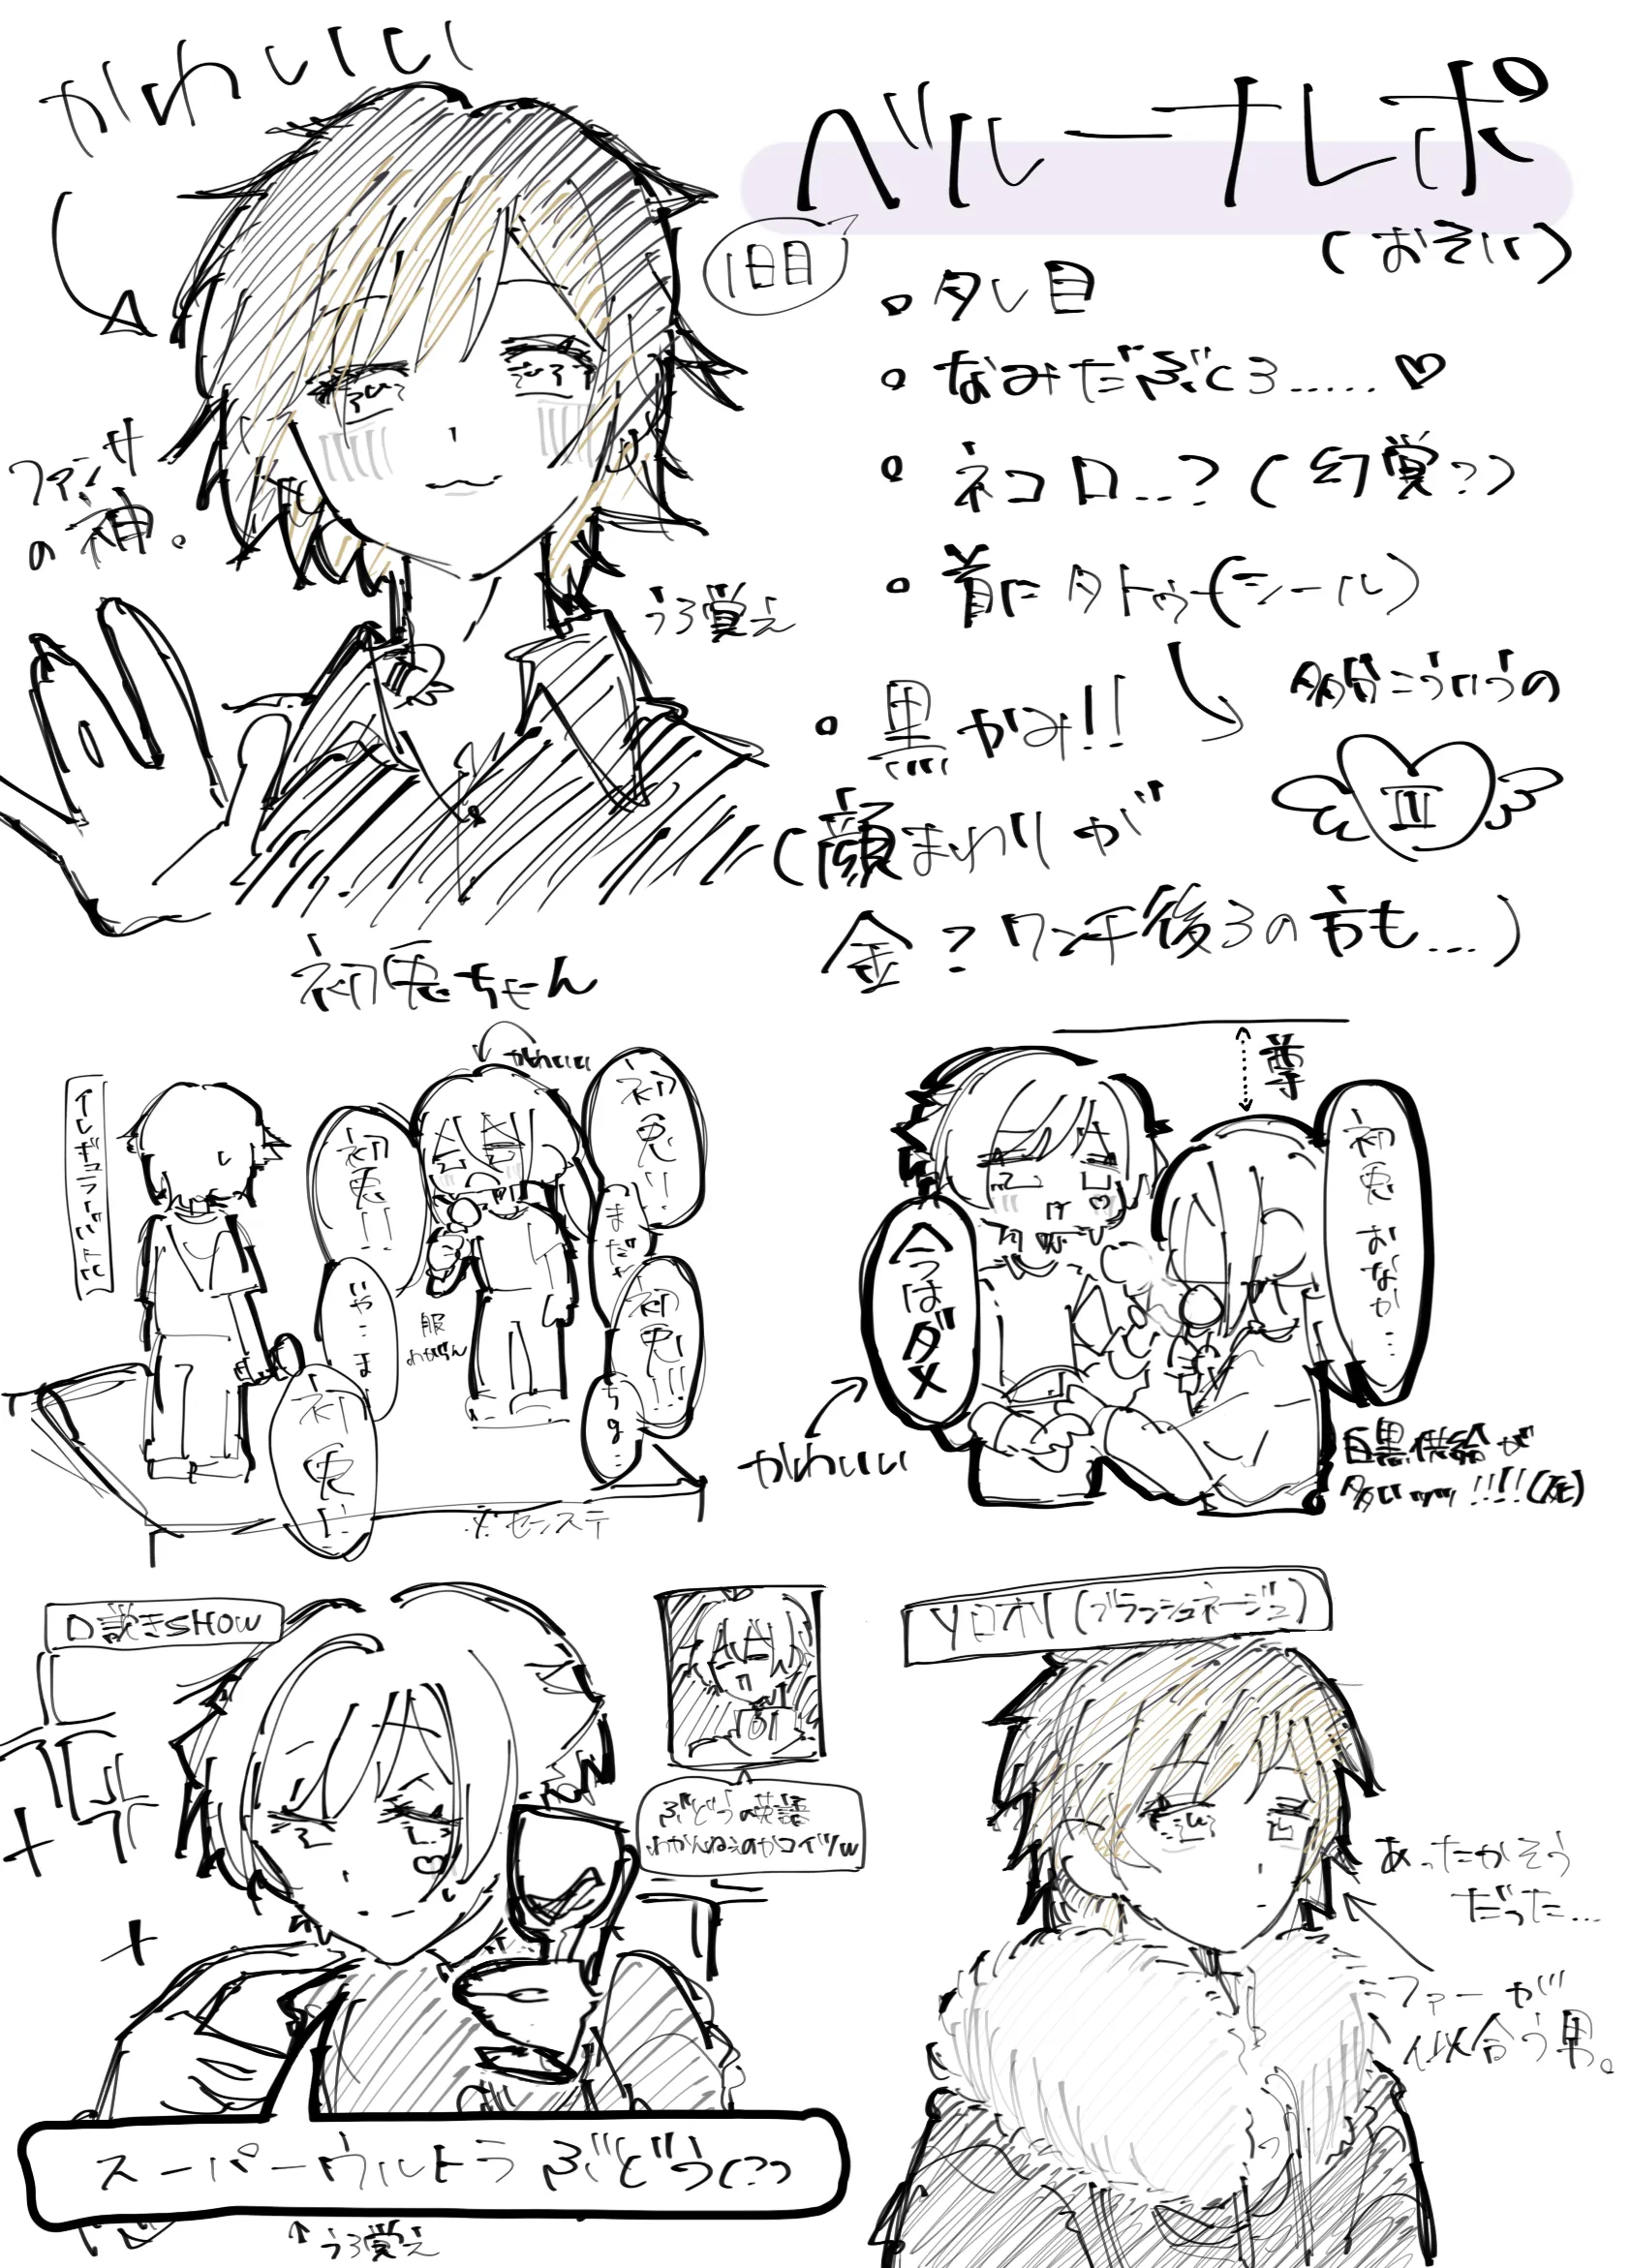 かわいい
ベルーナレポ
(おそい)
1日目
タレ目
なみだぶくろ.....♡
ネコ口...?(幻覚??)
首にタトゥー(シール)
多分こういうの
II
黒かみ!!
(顔まわりが
金?ワンチ後ろの方も...)
ファンサ
の神。
うろ覚え
初兎ちゃん
かわいい
初兎!!
まだや
初兎!!!
初兎!!
いや…ま
服
初兎!!
※センステ
尊
初兎おなか...
今はダメ
かわいい
白黒供給が
多いッッ!!!!(死)
口説きSHOW
ぶどうの英語
わかんねぇのかコイツw
スーパーウルトラぶどう(??)
↑うろ覚え
ソロオリ(ブラッシュネージュ)
あったかそう
だった...
ファーが
似合う男。